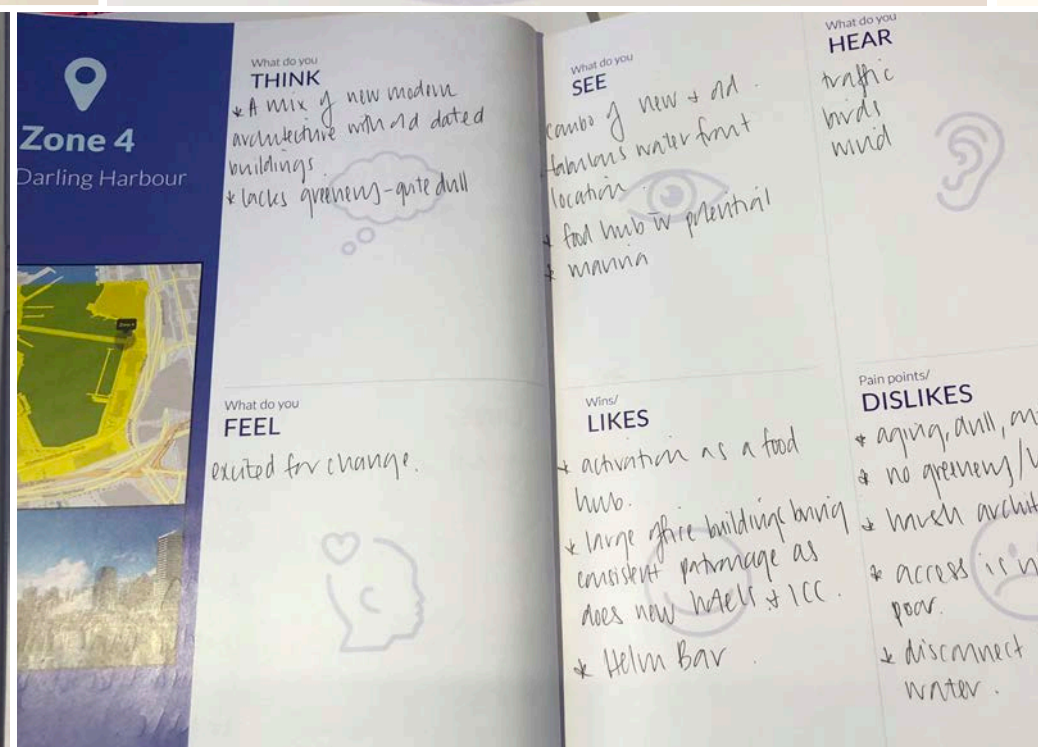 Zone 4
Darling Harbour
What do you
THINK
* A mix of new modern
architecture with old dated
buildings.
* lacks greenery - quite dull
What do you
FEEL
excited for change.
What do you
SEE
combo of new + old.
fabulous water front
location.
* food hub w potential
* marina
What do you
HEAR
traffic
birds
wind
Wins/
LIKES
* activation as a food
hub.
* large office buildings bring
consistent patronage as
does new hotels + ICC.
* Helm Bar
Pain points/
DISLIKES
* aging, dull,
* no greenery/
* harsh
* access is
poor.
* disconnect
water.